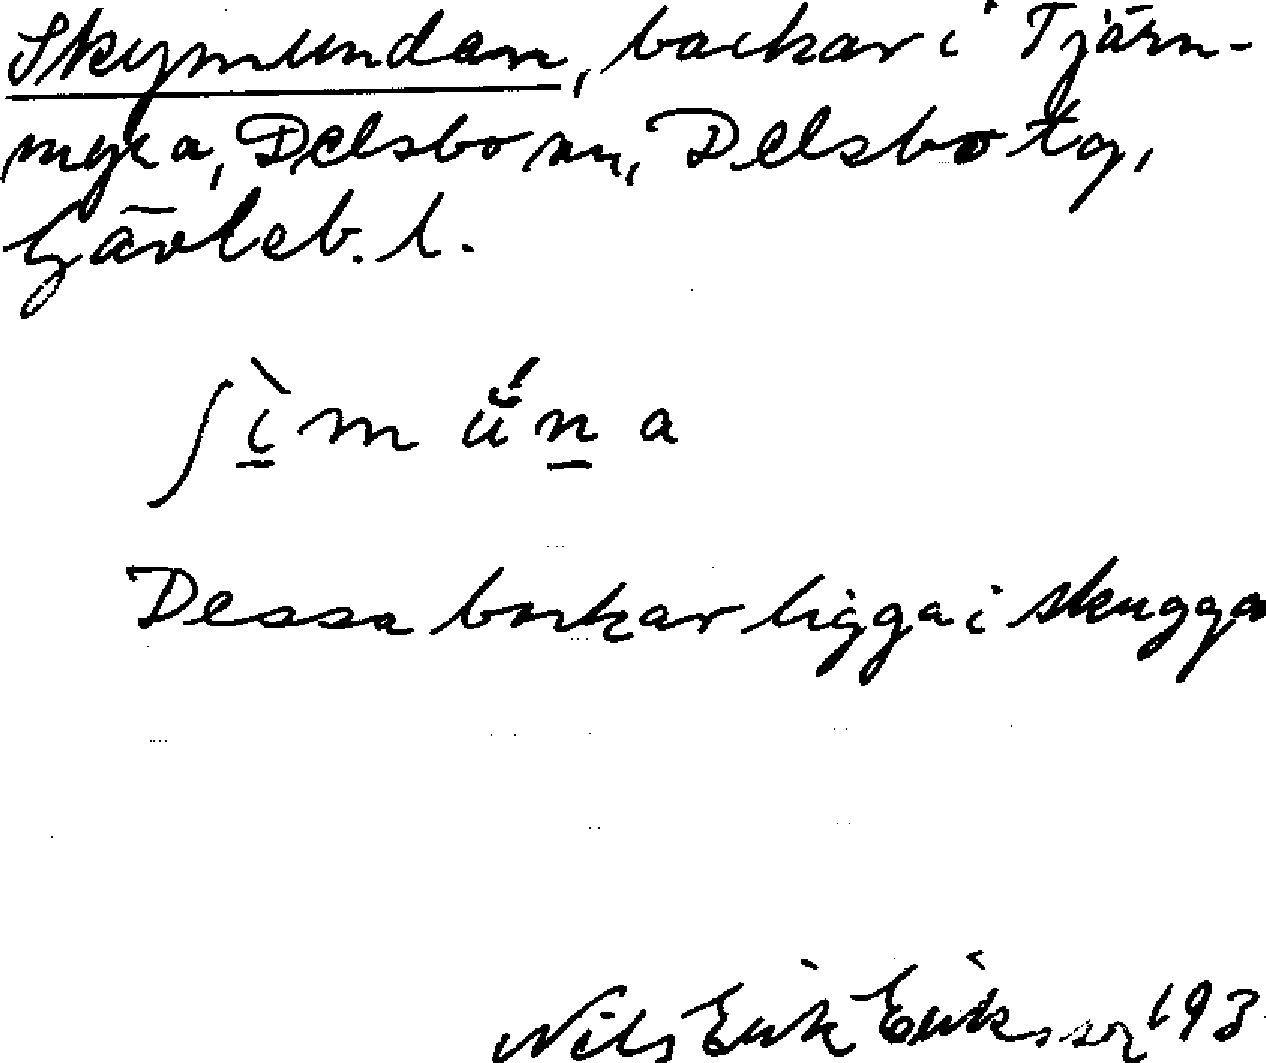 Skymundan, backar i Tjärn-
myra, Delsbo sn, Delsbo tg,
Gävleb. l.
ʃı̱̀m ŭ́ṉ a
Dessa backar ligga i skugga
Nils Erik Eriksson 193